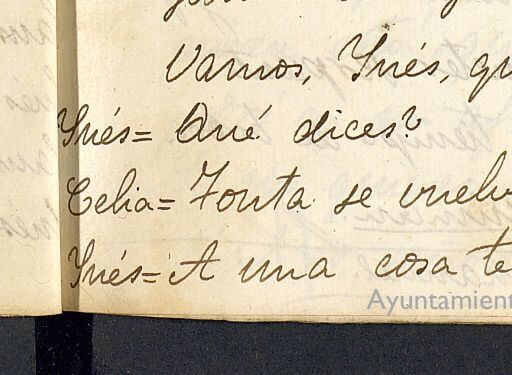 Vamos, Ynés, qu
Ynés= Qué dices?
Celia= Tonta se vuelv
Ynés= A una cosa te
Ayuntamient